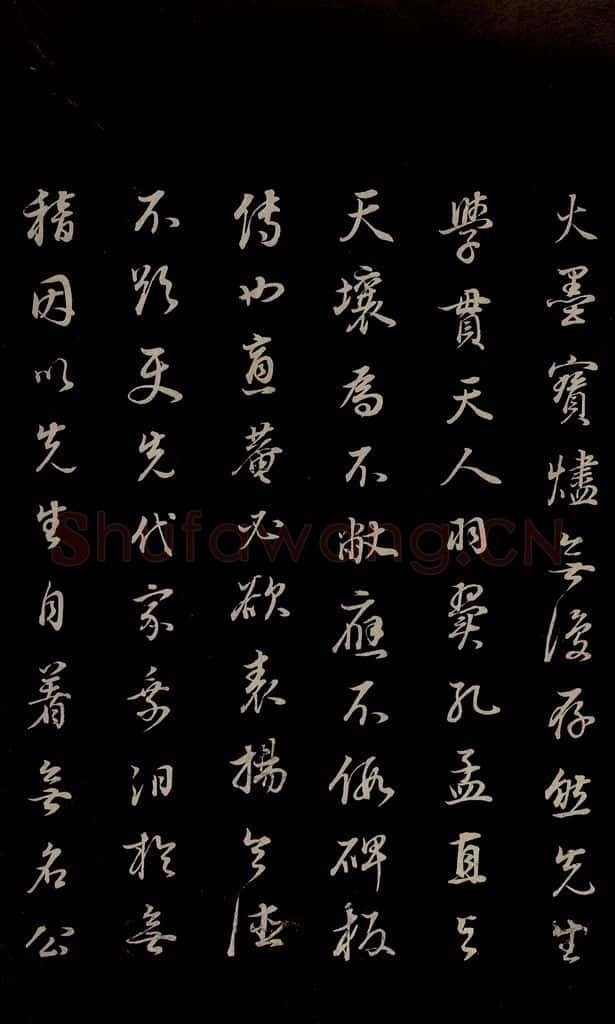 火墨寳燼無復存然先生
學貫天人羽翼孔孟直與
天壤為不敝應不假碑板
傳也宣菴必欲表揚令德
不欲更先代家乗汨於無
稽因以先生自着無名公
Shufawang.CN